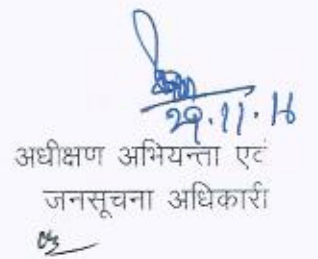 29.11.16
अधीक्षण अभियन्ता एवं
जनसूचना अधिकारी